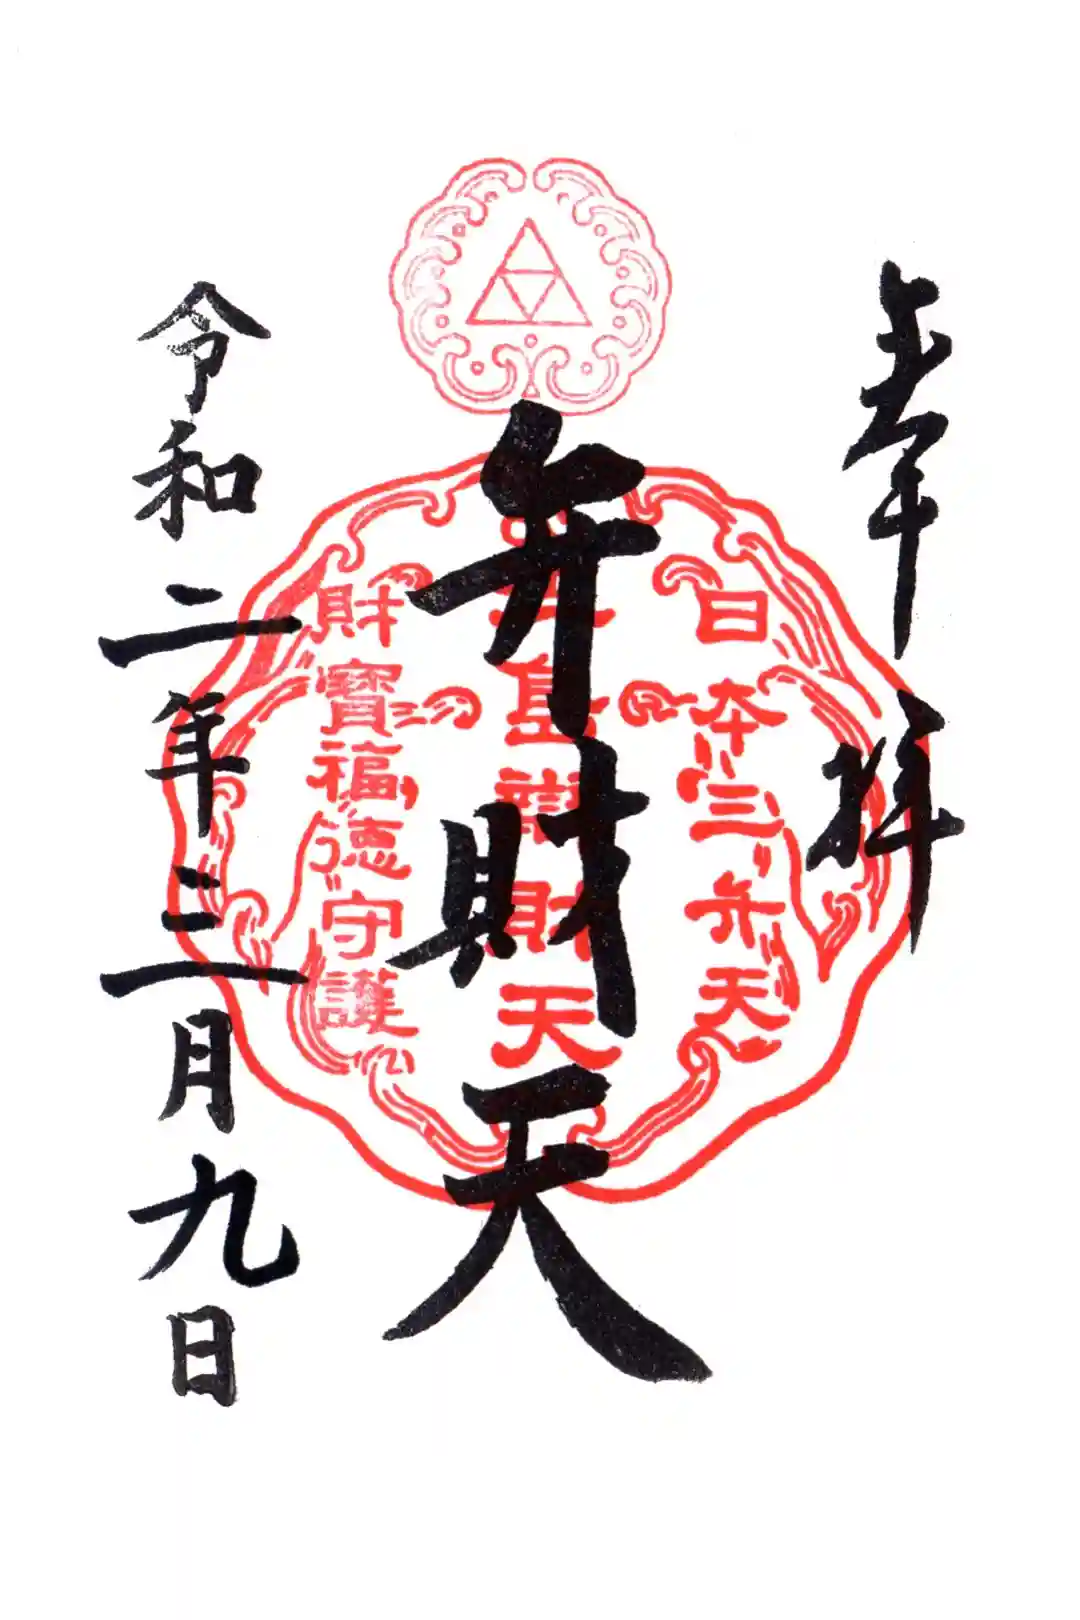 奉拝
日本三弁天
弁財天
島辨財天
財寳福徳守護
令和二年三月九日